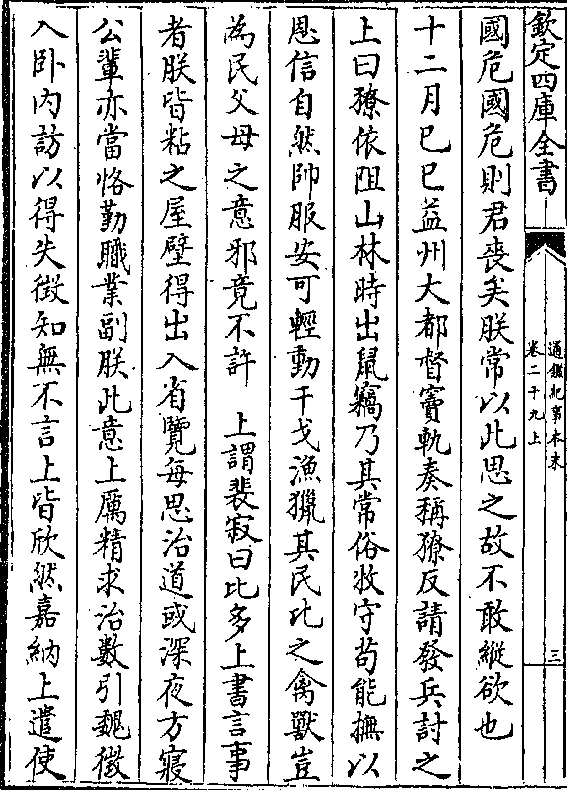 欽定四庫全書
通鑑紀事本末
卷二十九上
三
國危國危則君喪矣朕常以此思之故不敢縱欲也
十二月己巳益州大都督竇軌奏稱獠反請發兵討之
上曰獠依阻山林時出鼠竊乃其常俗牧守苟能撫以
恩信自然帥服安可輕動干戈漁獵其民比之禽獸豈
為民父母之意邪竟不許　上謂裴寂曰比多上書言事
者朕皆粘之屋壁得出入省覽每思治道或深夜方寢
公輩亦當恪勤職業副朕此意上厲精求治數引魏徵
入卧内訪以得失徵知無不言上皆欣然嘉納上遣使